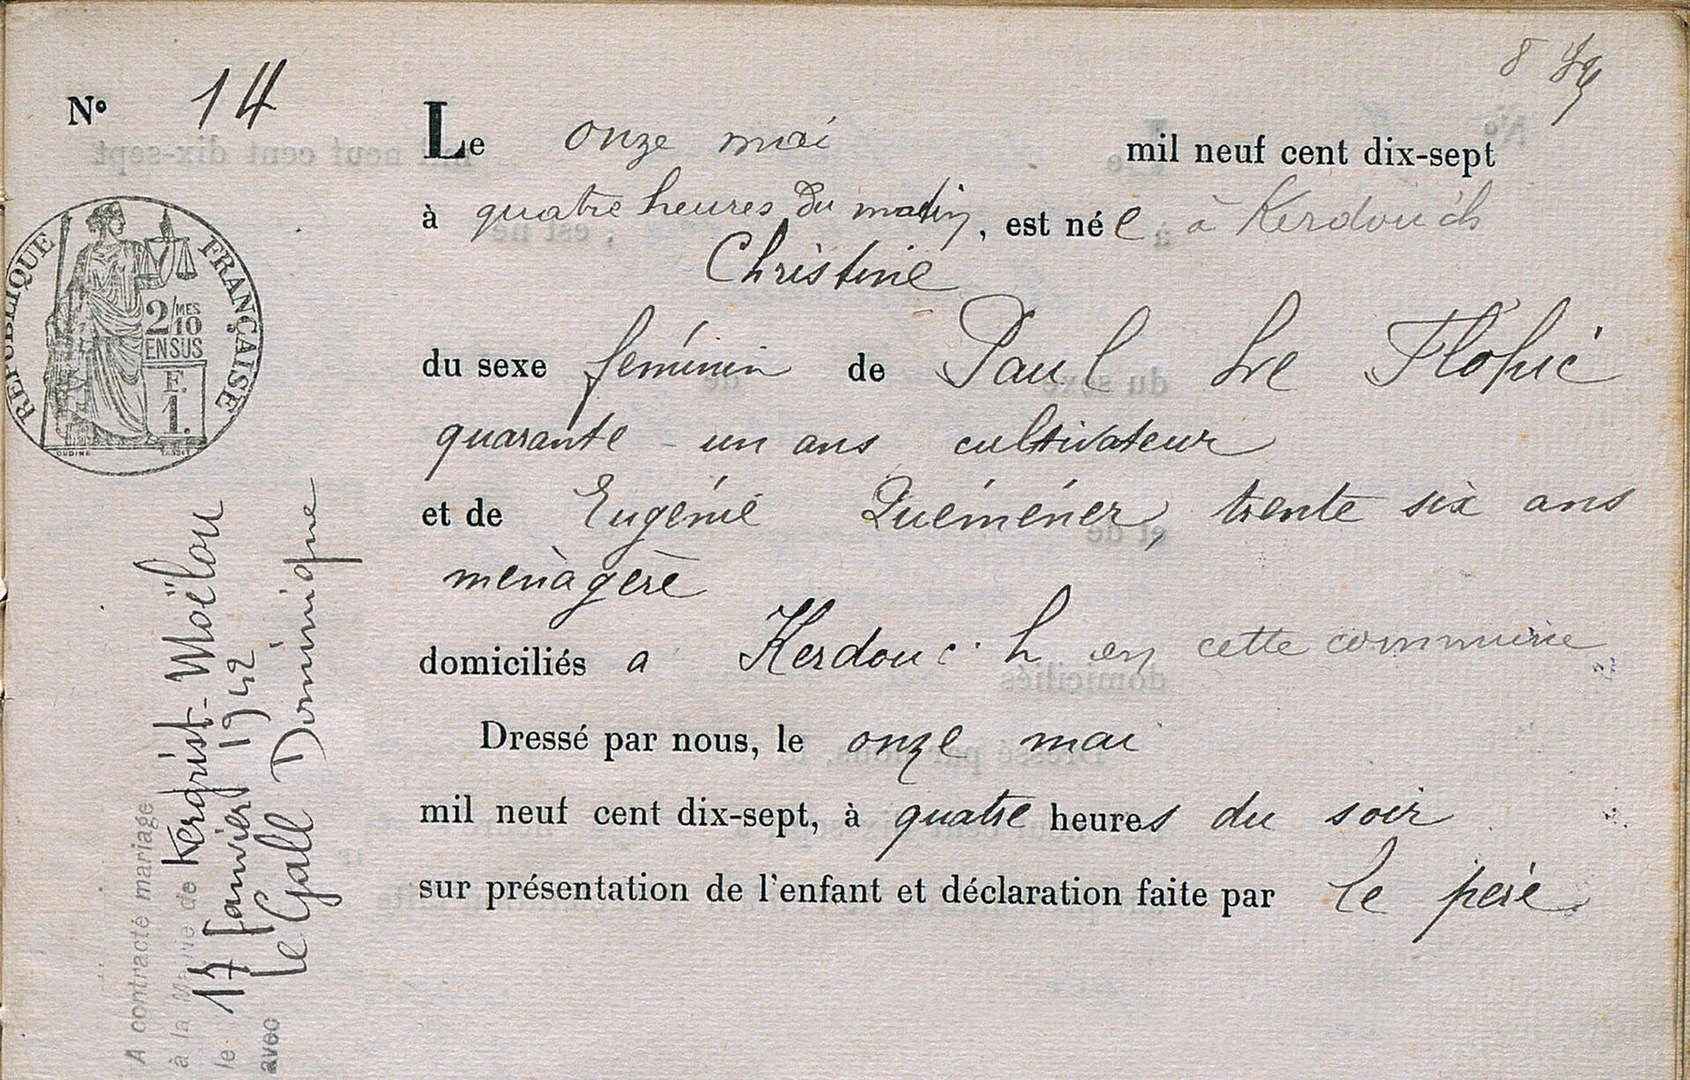 8
N° 14
Le onze mai mil neuf cent dix-sept
à quatre heures du matin, est née à Kerdouc'h
Christine
du sexe féminin de Paul Le Flohic
quarante-un ans cultivateur
et de Eugénie Quéméner, trente six ans
ménagère
domiciliés à Kerdouc'h en cette commune
Dressé par nous, le onze mai
mil neuf cent dix-sept, à quatre heures du soir
sur présentation de l'enfant et déclaration faite par le père
RÉPUBLIQUE FRANÇAISE
2/10MES
EN SUS
F.
1.
A contracté mariage
à la Mairie de Kergrist-Moëlou
le 17 Janvier 1942
avec Le Gall Dominique